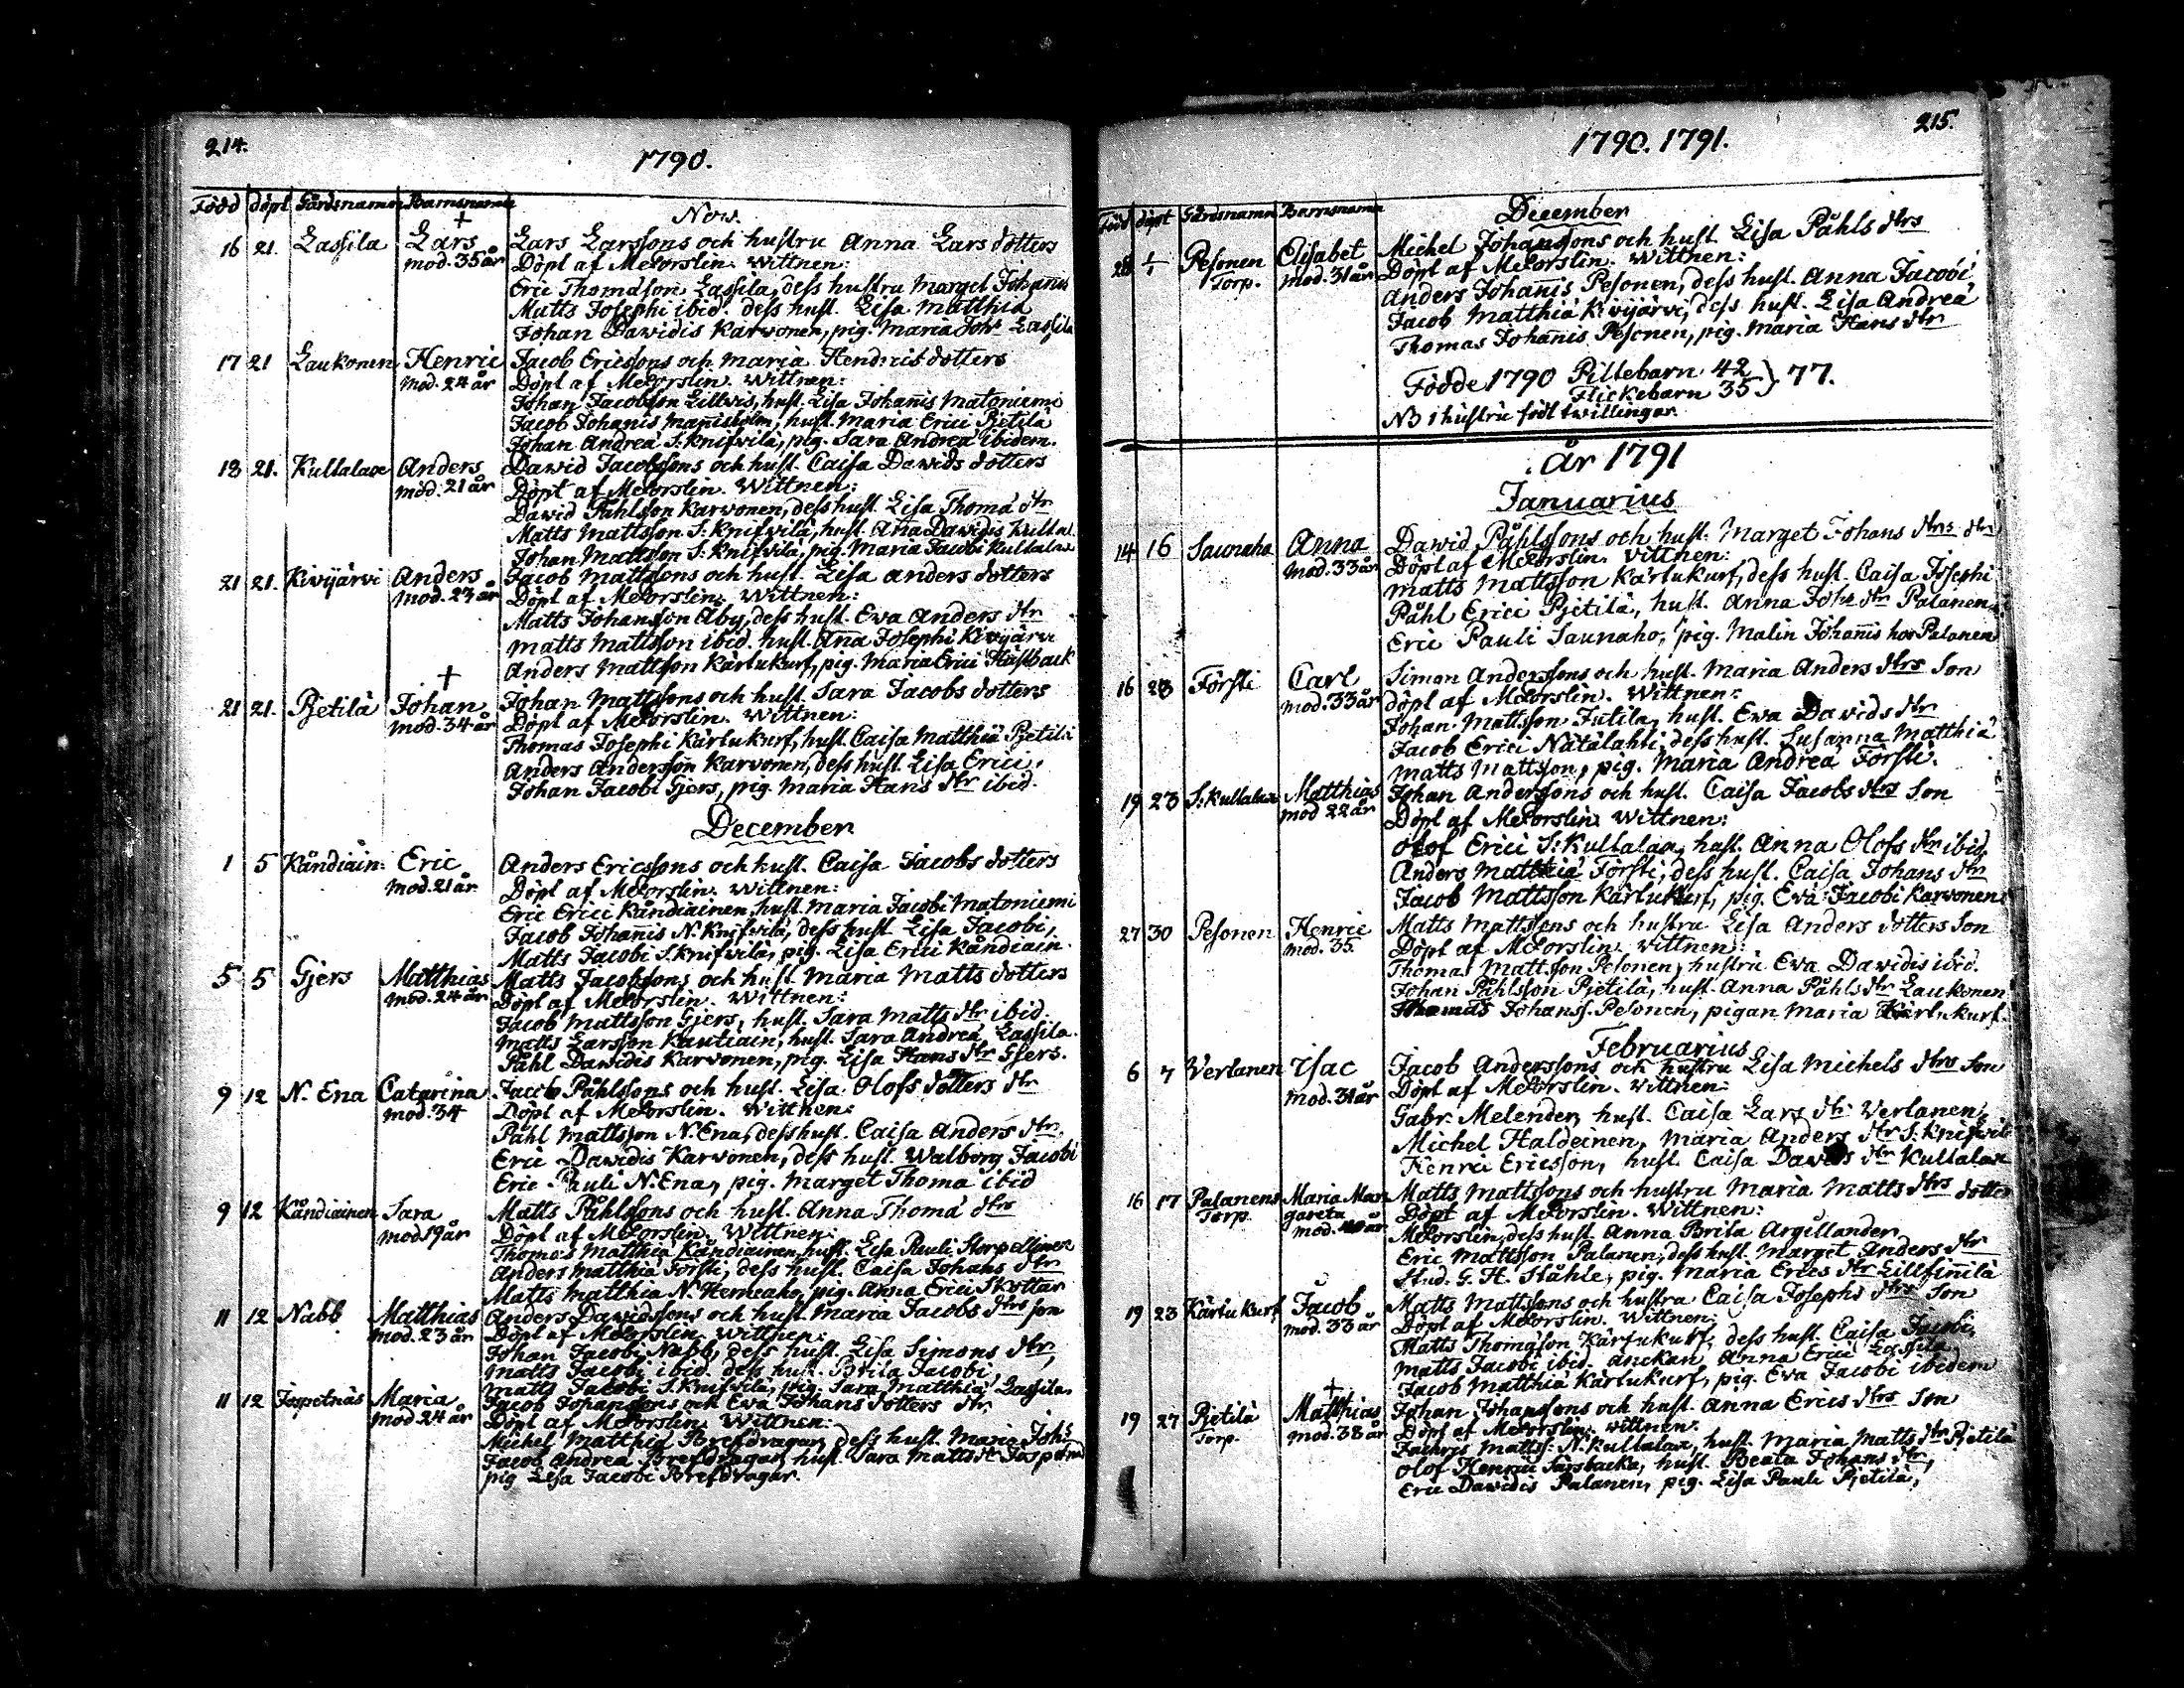 214.
1790.
Född döpt Gårdsnamn Barnsnamn
Nov.
16 21. Lassila Lars Lars Larssons och hustru Anna Lars dotters
mod. 35 år Döpt af MeCorslin. Wittnen:
Eric Thomasson Lassila, dess hustru Marget Johannis
Matts Josephi ibid. dess hust. Lisa Matthia
Johan Dawidis Karvonen, pig. Maria Johs Lassila
17 21 Laukonen Henric Jacob Ericssons och Maria Hendrics dotters
mod. 24 år Döpt af MeCorslin. Wittnen:
Johan Jacobsson Lillvis, hust. Lisa Johannis Matoniemi
Jacob Johanis Mannisholm, hust. Maria Erici Pjetilä
Johan Andreä S: Knifvilä, pig. Sara Andreä ibidem.
18 21. Kullalax Anders Dawid Jacobssons och hust. Caisa Dawids dotters
mod: 21 år Döpt af MeCorslin. Wittnen:
Dawid Påhlsson Karvonen, dess hust. Lisa Thomä dtr
Matts Mattsson S: Knifvilä, hust. Aña Dawidis Kullal
Johan Mattsson S: Knifvila, pig. Maria Jacobi Kullalax
21 21. Kivijärvi Anders Jacob Mattssons och hust. Lisa Anders dotters
mod. 23 år Döpt af MeCorslin. Wittnen:
Matts Johansson Åby, dess hust. Ewa Anders dtr
Matts Mattsson ibid. hust. Ana Josephi Kivijärvi
Anders Mattsson Kärlukurf, pig. Maria Erici Hästback
21 21. Pjetilä Johan Johan Mattssons och hust. Sara Jacobs dotters
mod. 34 år Döpt af MeCorslin. Wittnen:
Thomas Josephi Kärlukurf, hust. Caisa Matthiä Pjetilä
Anders Andersson Karvonen, dess hust. Lisa Erici,
Johan Jacobi Gjers, pig. Maria Hans dtr ibid.
December
1 5 Kåndiain: Eric Anders Ericssons och hust. Caisa Jacobs dotters
mod. 21 år Döpt af MeCorslin. Wittnen:
Eric Erici Kåndiainen, hust. Maria Jacobi Matoniemi
Jacob Johañis N. Knifvilä, dess hust. Lisa Jacobi,
Matts Jacobi S. Knifvilä, pig. Lisa Erici Kåndiain.
5 5 Gjers Matthias Matts Jacobssons och hust. Maria Matts dotters
mod. 24 år Döpt af MeCorslin. Wittnen:
Jacob Mattsson Gjers, hust. Sara Matts dtr ibid.
Matts Larsson Kautiain, hust. Sara Andreä Lassila.
Påhl Dawidis Karvonen, pig. Lisa Hans dtr Gjers.
9 12 N. Ena Catarina Jacob Påhlssons och hust. Lisa Olofs dotters dtr
mod. 34 Döpt af MeCorslin. Wittnen:
Påhl Mattsson N. Ena, dess hust. Caisa Anders dtr,
Eric Dawidis Karvonen, dess hust. Walborg Jacobi
Eric Pauli N. Ena, pig. Marget Thoma ibid
9 12 Kåndiainen Sara Matts Påhlssons och hust. Anna Thomä dtrs
mod 19 år Döpt af MeCorslin. Wittnen:
Thomas Matthiä Kåndiainen, hust. Lisa Pauli
Anders Matthiä Försti, dess hust. Caisa Johans dtr
Matts Matthia N. Herneaho, pig. Anna Erici Skottar
11 12 Nabb Matthias Anders Dawidssons och hust. Maria Jacobs dtrs son
mod. 23 år Döpt af MeCorslin. Wittnen:
Johan Jacobi Nabb, dess hust. Lisa Simons dtr,
Matts Jacobi ibid. dess hust. Brita Jacobi
Matts Jacobi S. Knifvilä, pig. Sara Matthiä Lassila.
11 12 Jospetnäs Maria Jacob Johanssons och Eva Johans dotters dtr
mod 24 år Döpt af MeCorslin. Wittnen:
Michel Matthiä Brefdragar, dess hust. Maria Johs
Jacob Andreä Brefdragar, hust. Sara Matts dtr
pig Lisa Jacobi Brefdragar.
215.
1790. 1791.
Född döpt Gårdsnamn Barnsnamn
December
28 1/1 Pesonen Elisabet Michel Johanssons och hust. Lisa Påhls dtrs
Torp. mod. 31 år Döpt af MeCorslin. Wittnen:
Anders Johanis Pesonen, dess hust. Anna Jacobi
Jacob Matthiä Kivijärvi, dess hust. Lisa Andreä
Thomas Johañis Pesonen, pig. Maria Hans dtr
Födde 1790 Piltebarn 42
Flickebarn 35 } 77.
NB 1 hustru födt twillingar.
År 1791
Januarius
14 16 Saunaho Anna Dawid Påhlssons och hust. Marget Johans dtrs dtr
mod. 33 år Döpt af MeCorslin. Wittnen:
Matts Mattsson Kärlukurf, dess hust. Caisa Josephi
Påhl Erici Pjetilä, hust. Anna Johs dtr Palanen,
Eric Pauli Saunaho, pig. Malin Johañis hos Palanen
16 23 Försti Carl Simon Anderssons och hust. Maria Anders dtrs Son
mod. 33 år döpt af MeCorslin. Wittnen:
Johan Mattsson Jutila, hust. Ewa Dawids dtr
Jacob Erici Nätälahti, dess hust. Susanna Matthiä
Matts Mattsson, pig. Maria Andreä Försti.
19 23 S: Kullalax Matthias Johan Anderssons och hust. Caisa Jacobs dtrs Son
mod 22 år Döpt af MeCorslin. Wittnen:
Olof Erici S: Kullalax, hust. Anna Olofs dtr ibid.
Anders Matthiä Försti, dess hust. Caisa Johans dtr
Jacob Mattsson Kärlukurf, pig. Eva Jacobi Karvonens
27 30 Pesonen Henric Matts Mattssons och hustru Lisa Anders dotters Son
mod. 35 Döpt af MeCorslin. Wittnen:
Thomas Mattsson Pesonen, hustru Eva Dawidis ibid.
Johan Påhlsson Pjetilä, hust. Anna Påhls dtr Laukonen
Thomas Johanss. Pesonen, pigan Maria Kärlukurf.
Februarius
6 7 Vertanen Isac Jacob Anderssons och hustru Lisa Michels dtrs Son
mod. 31 år Döpt af MeCorslin. Wittnen:
Gabr. Melender, hust. Caisa Lars dtr Vertanen,
Michel Haldeinen, Maria Anders dtr S: Knifvil
Henric Ericsson, hust. Caisa Dawids dtr Kullalax
16 17 Palanens Maria Mar Matts Mattssons och hustru Maria Matts dtrs dotter
Torp. gareta Döpt af MeCorslin. Wittnen:
mod. år MeCorslin, dess hust. Anna Brita Argillander,
Eric Mattsson Palanen, dess hust. Marget Anders dtr
Stud. G. H. Ståhle, pig. Maria Erics dtr Lillfinnilä
19 23 Kärlukurf Jacob Matts Mattssons och hustru Caisa Josephs dtrs Son
mod. 33 år Döpt af MeCorslin. Wittnen:
Matts Thomasson Kärlukurf, dess hust. Caisa Jacobi,
Matts Jacobi ibid. änckan Anna Erici Lassila,
Jacob Matthiä Kärlukurf, pig. Eva Jacobi ibidem
19 27 Pjetilä Matthias Johan Johanssons och hust. Anna Erics dtrs Son
Torp. mod. 38 år Döpt af MeCorslin. Wittnen:
Zachris Matts: N. Kullalax, hust. Maria Matts dtr Pjetilä
Olof Henrici Sarsbacka, hust. Beata Johans dtr,
Eric Dawidis Palanen, pig. Lisa Pauli Pjetilä,